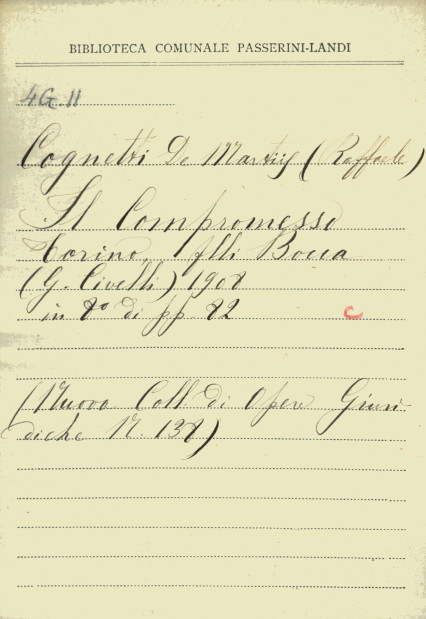 BIBLIOTECA COMUNALE PASSERINI-LANDI
4G 11
Cognetti De Martiis (Raffaele)
Il Compromesso
Torino, flli Bocca
(G. Civelli) 1908
in 8º di pp 82
C
(Nuova Coll di Opere Giuri-
diche N. 138)